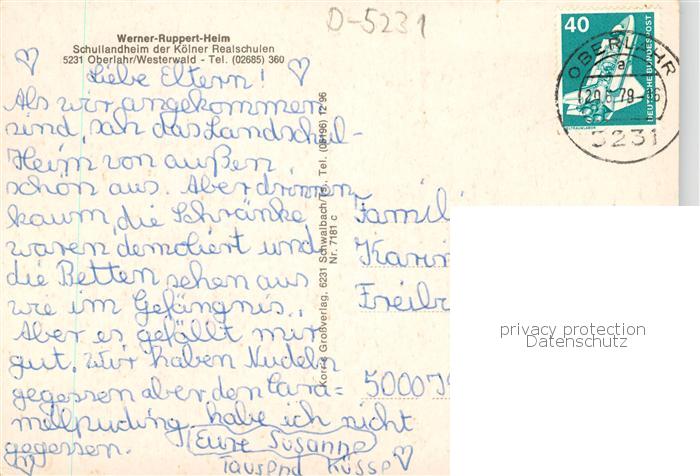 D-5231
Werner-Ruppert-Heim
Schullandheim der Kölner Realschulen
5231 Oberlahr/Westerwald - Tel. (02685) 360
Liebe Eltern!
Als wir angekommen
sind, sah das Landschul-
Heim von außen
schon aus. Aber drinnen
kaum, die Schränke
waren demoliert und
die Betten sehen aus
wie im Gefängnis.
Aber es gefällt mir
gut. Wir haben Nudeln
gegessen aber den Cara=
mellpuding habe ich nicht
gegessen.
Eure Susanne
Tausend Küsse
Korr's Großverlag, 6231 Schwalbach/Ts., Tel. (06196) 12 96
Nr. 7181 c
40
DEUTSCHE BUNDESPOST
OBERLAHR
a
5231
Famili
Karin
Freib
5000
privacy protection
Datenschutz